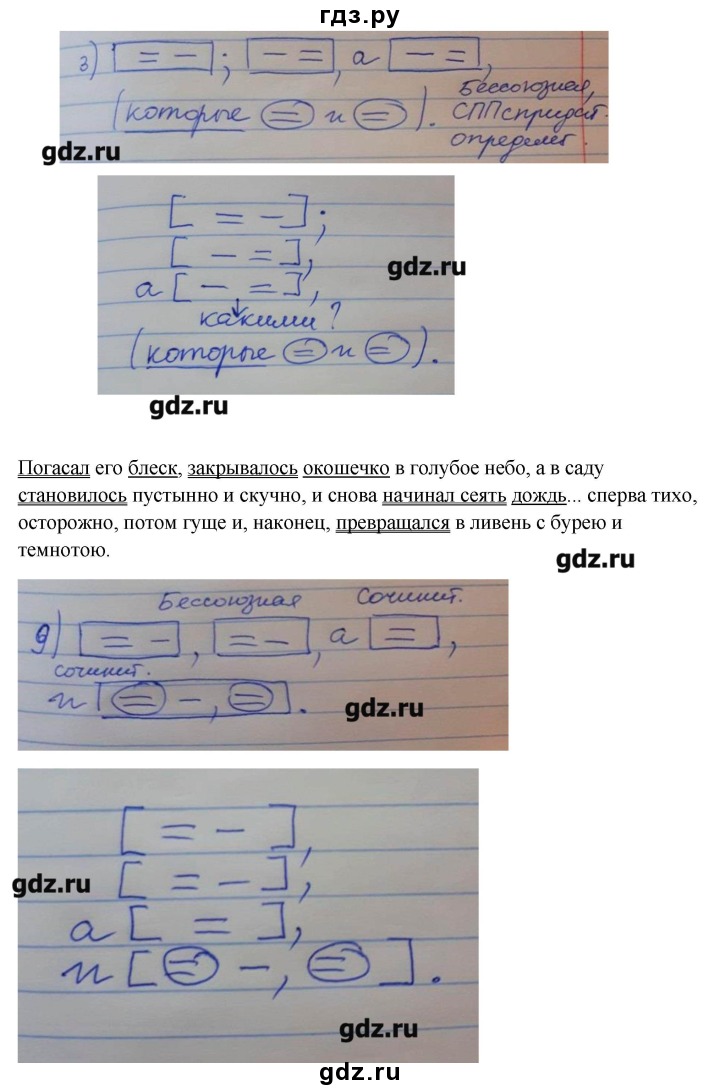 гдз.ру
3) [= –]; [– =], а [– =],
(которые = и =). Бессоюзная,
СПП с придат.
определит.
gdz.ru
[= –];
[– =],
gdz.ru
а [– =],
какими?
(которые = и =).
gdz.ru
Погасал его блеск, закрывалось окошечко в голубое небо, а в саду
становилось пустынно и скучно, и снова начинал сеять дождь... сперва тихо,
осторожно, потом гуще и, наконец, превращался в ливень с бурею и
темнотою.
gdz.ru
Бессоюзная Сочинит.
9) [= –], [= –], а [=],
сочинит.
и [= –, =].
gdz.ru
[= –],
[= –],
gdz.ru
а [=],
и [= –, =].
gdz.ru
gdz.ru